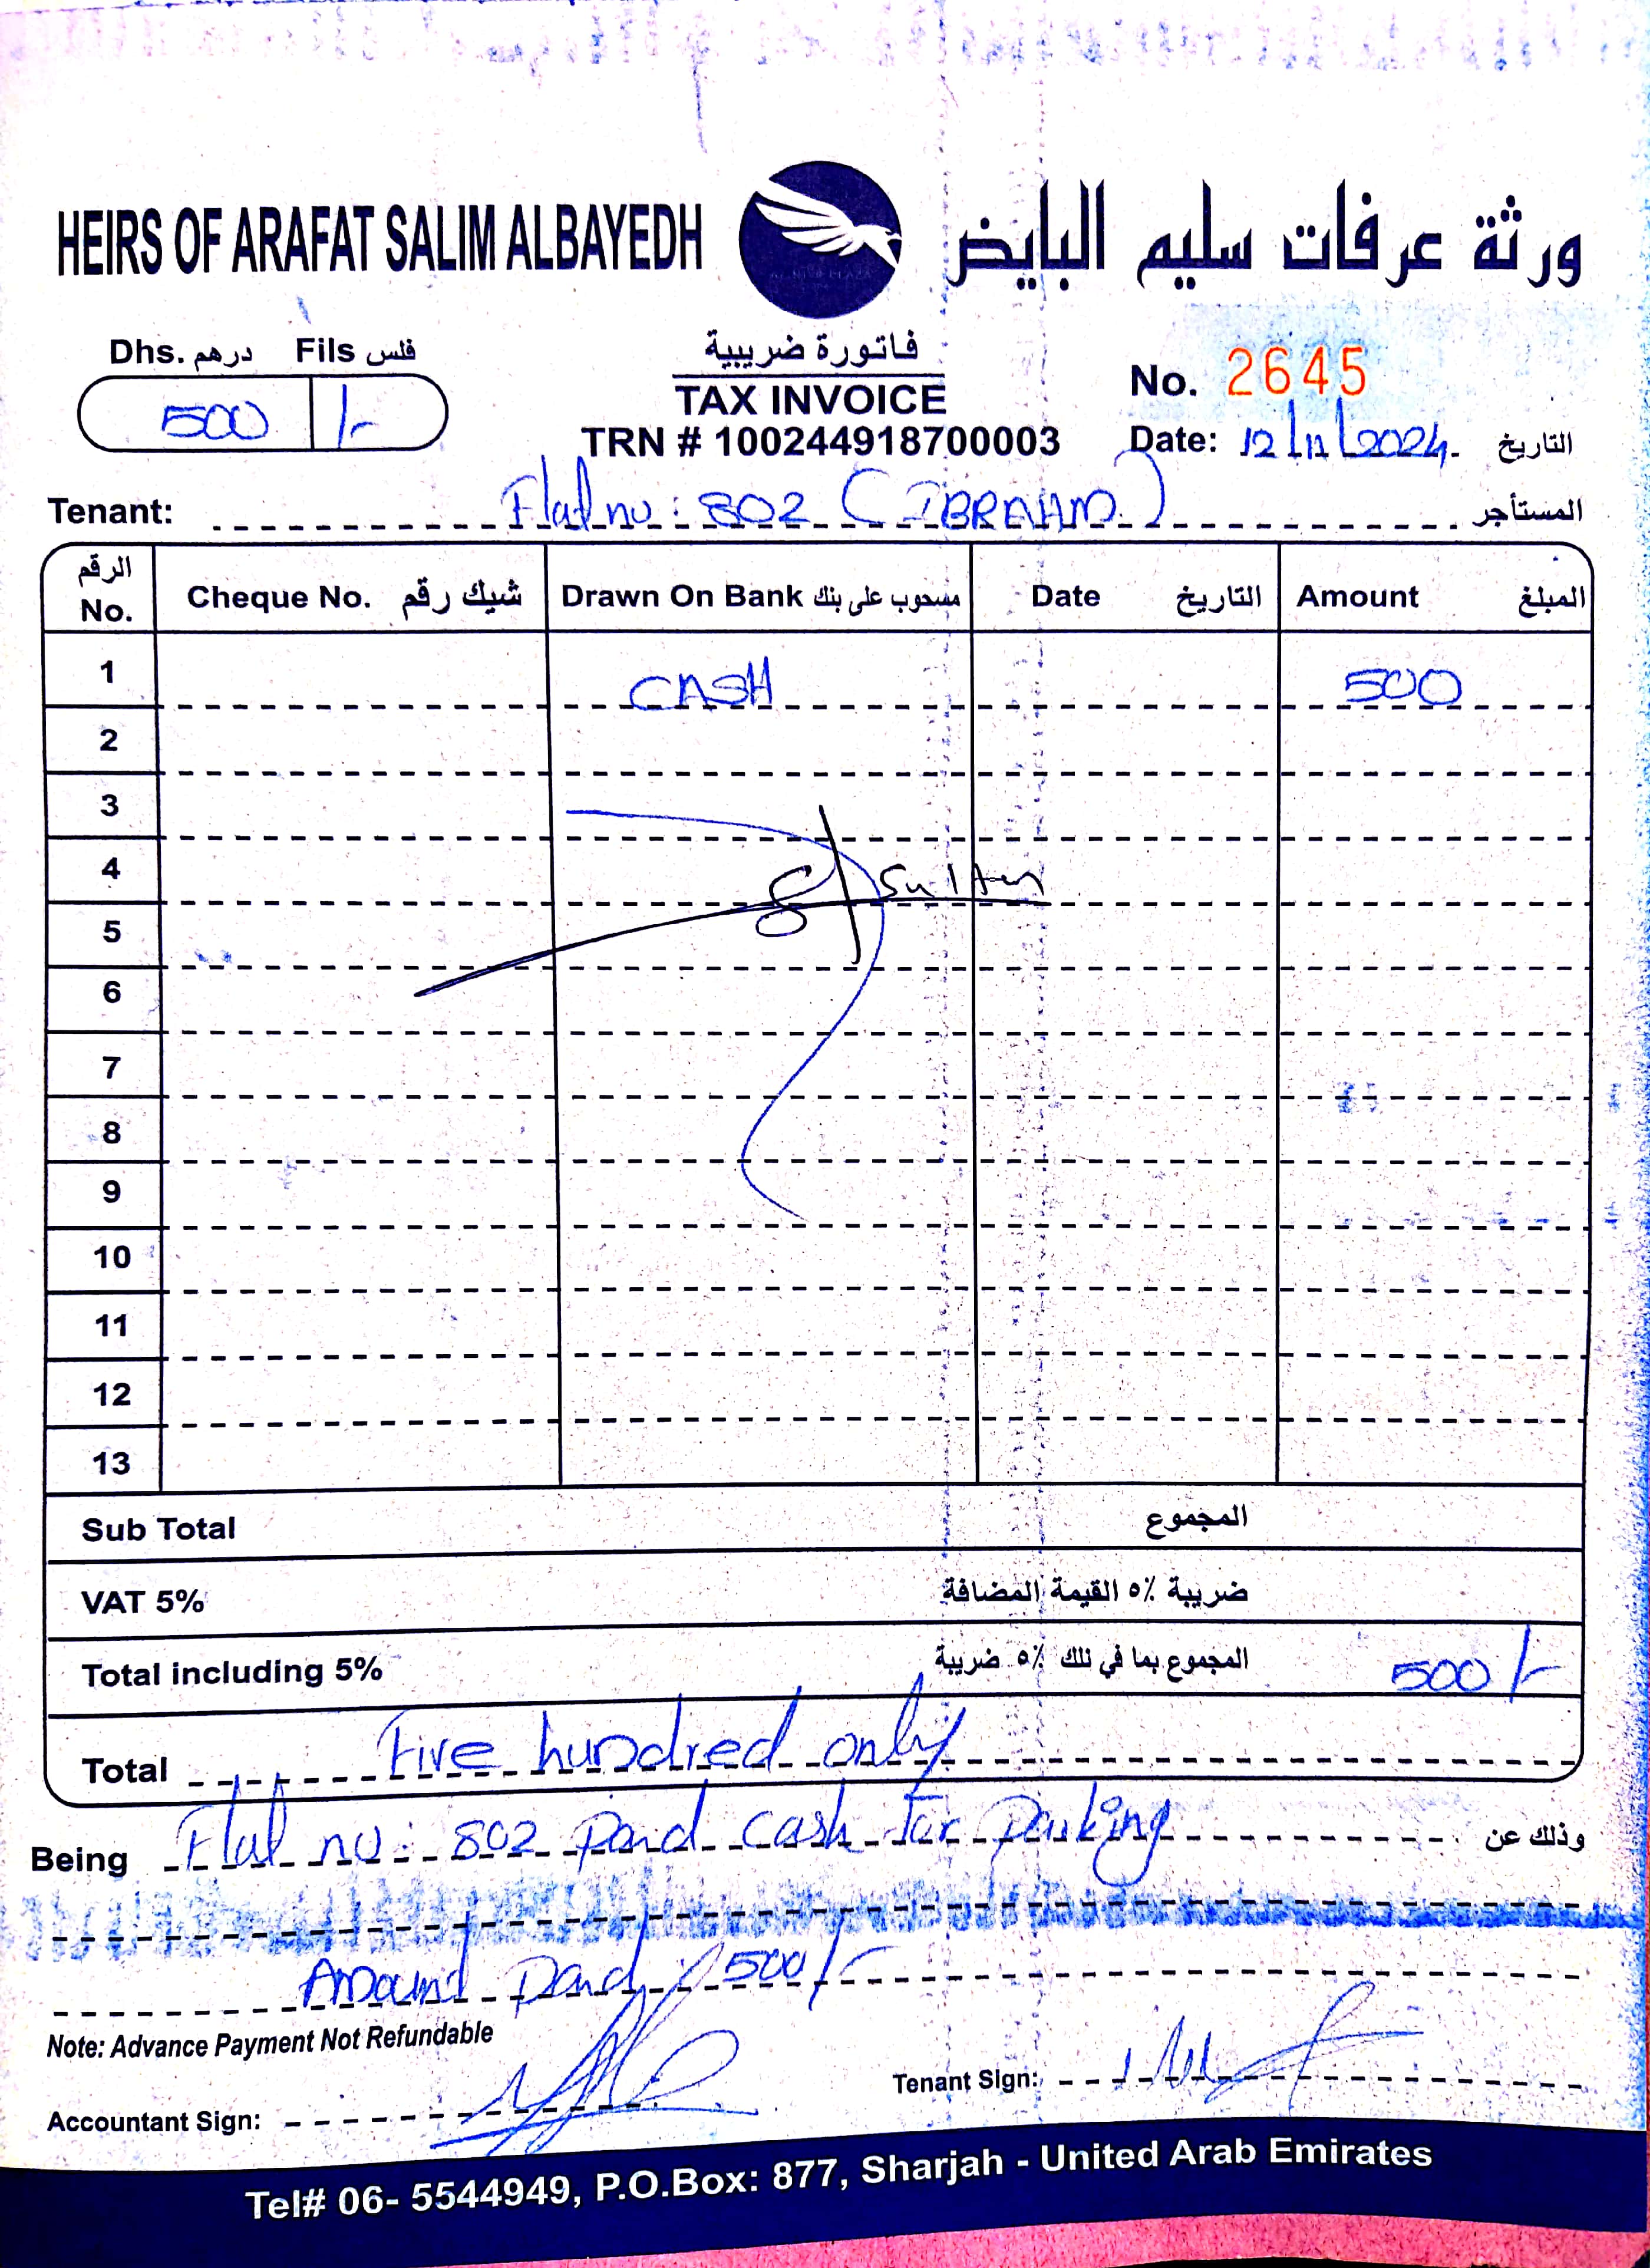 HEIRS OF ARAFAT SALIM ALBAYEDH ورثة عرفات سليم البايض
Dhs. درهم Fils فلس
500 /-
فاتورة ضريبية
TAX INVOICE
TRN # 100244918700003
No. 2645
Date: 12/11/2024. التاريخ
Tenant: Flat no: 802 (IBRAHIM) المستأجر
الرقم No. Cheque No. شيك رقم Drawn On Bank مسحوب على بنك Date التاريخ Amount المبلغ
1 CASH 500
2
3
4 Sultan
5
6
7
8
9
10
11
12
13
Sub Total المجموع
VAT 5% ضريبة ٥٪ القيمة المضافة
Total including 5% المجموع بما في تلك ٥٪ ضريبة 500/-
Total Five hundred only
Being Flat no: 802 paid cash for parking وذلك عن
Amount paid 500/-
Note: Advance Payment Not Refundable
Accountant Sign:
Tenant Sign:
Tel# 06- 5544949, P.O.Box: 877, Sharjah - United Arab Emirates